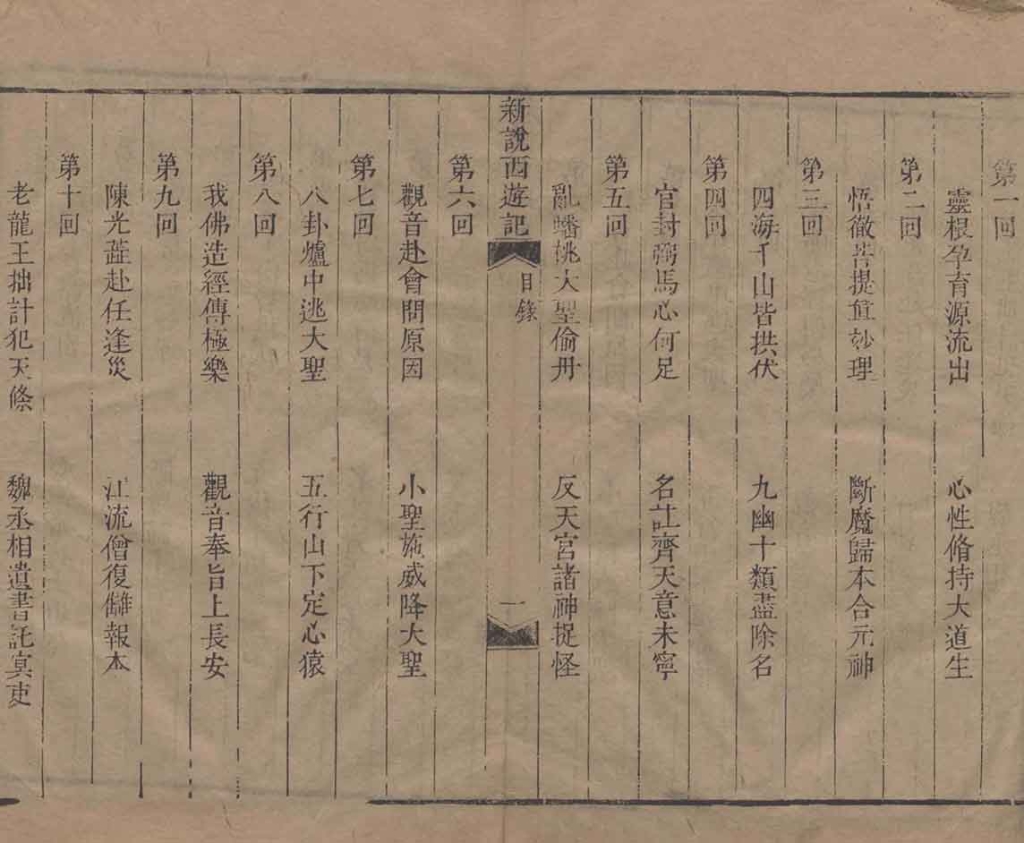 第一回
靈根孕育源流出 心性脩持大道生
第二回
悟徹菩提眞妙理 斷魔歸本合元神
第三回
四海千山皆拱伏 九幽十類盡除名
第四回
官封弼馬心何足 名注齊天意未寧
第五回
亂蟠桃大聖偷丹 反天宮諸神捉怪
新說西遊記 目錄 一
第六回
觀音赴會問原因 小聖施威降大聖
第七回
八卦爐中逃大聖 五行山下定心猿
第八回
我佛造經傳極樂 觀音奉旨上長安
第九回
陳光蕋赴任逢災 江流僧復讎報本
第十回
老龍王拙計犯天條 魏丞相遺書託冥吏